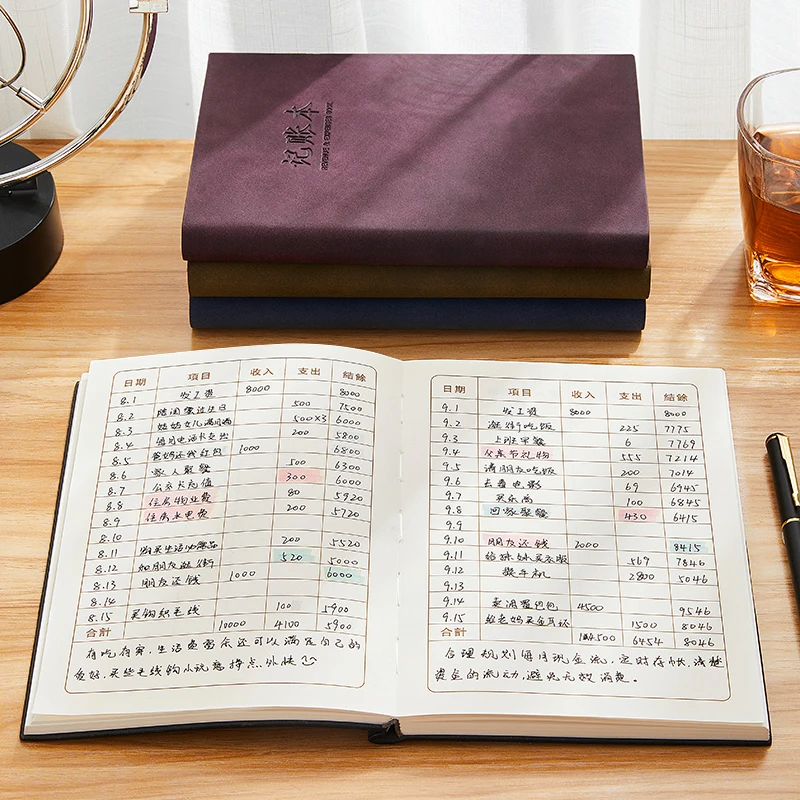 记账本
日期 項目 收入 支出 結餘
8.1 发工资 8000 8000
8.2 500 7500
8.3 500×3 6000
8.4 200 5800
8.5 1000 6800
8.6 家人聚餐 500 6300
8.7 公交卡充值 300 6000
8.8 住房物业费 80 5920
8.9 住房水电费 200 5720
8.10
8.11 购买生活必需品 200 5520
8.12 520 5000
8.13 朋友还钱 1000 6000
8.14
8.15 买钩织毛线 100 5900
合計 10000 4100 5900
有吃有穿,生活费富余还可以满足自己的
喜好,买些毛线钩小玩意挣点外快
日期 項目 收入 支出 結餘
9.1 发工资 8000 8000
9.2 逛街吃饭 225 7775
9.3 上班早餐 6 7769
9.4 父亲节礼物 555 7214
9.5 请朋友吃饭 200 7014
9.6 去看电影 69 6945
9.7 100 6845
9.8 回家聚餐 430 6415
9.9
9.10 朋友还钱 2000 8415
9.11 给妹妹买衣服 569 7846
9.12 换手机 2800 5046
9.13
9.14 卖闲置包包 4500 9546
9.15 给老妈买金耳环 1500 8046
合計 14500 6454 8046
合理规划每月现金流,定时存钱,清楚
资金的流动,避免无效消费。